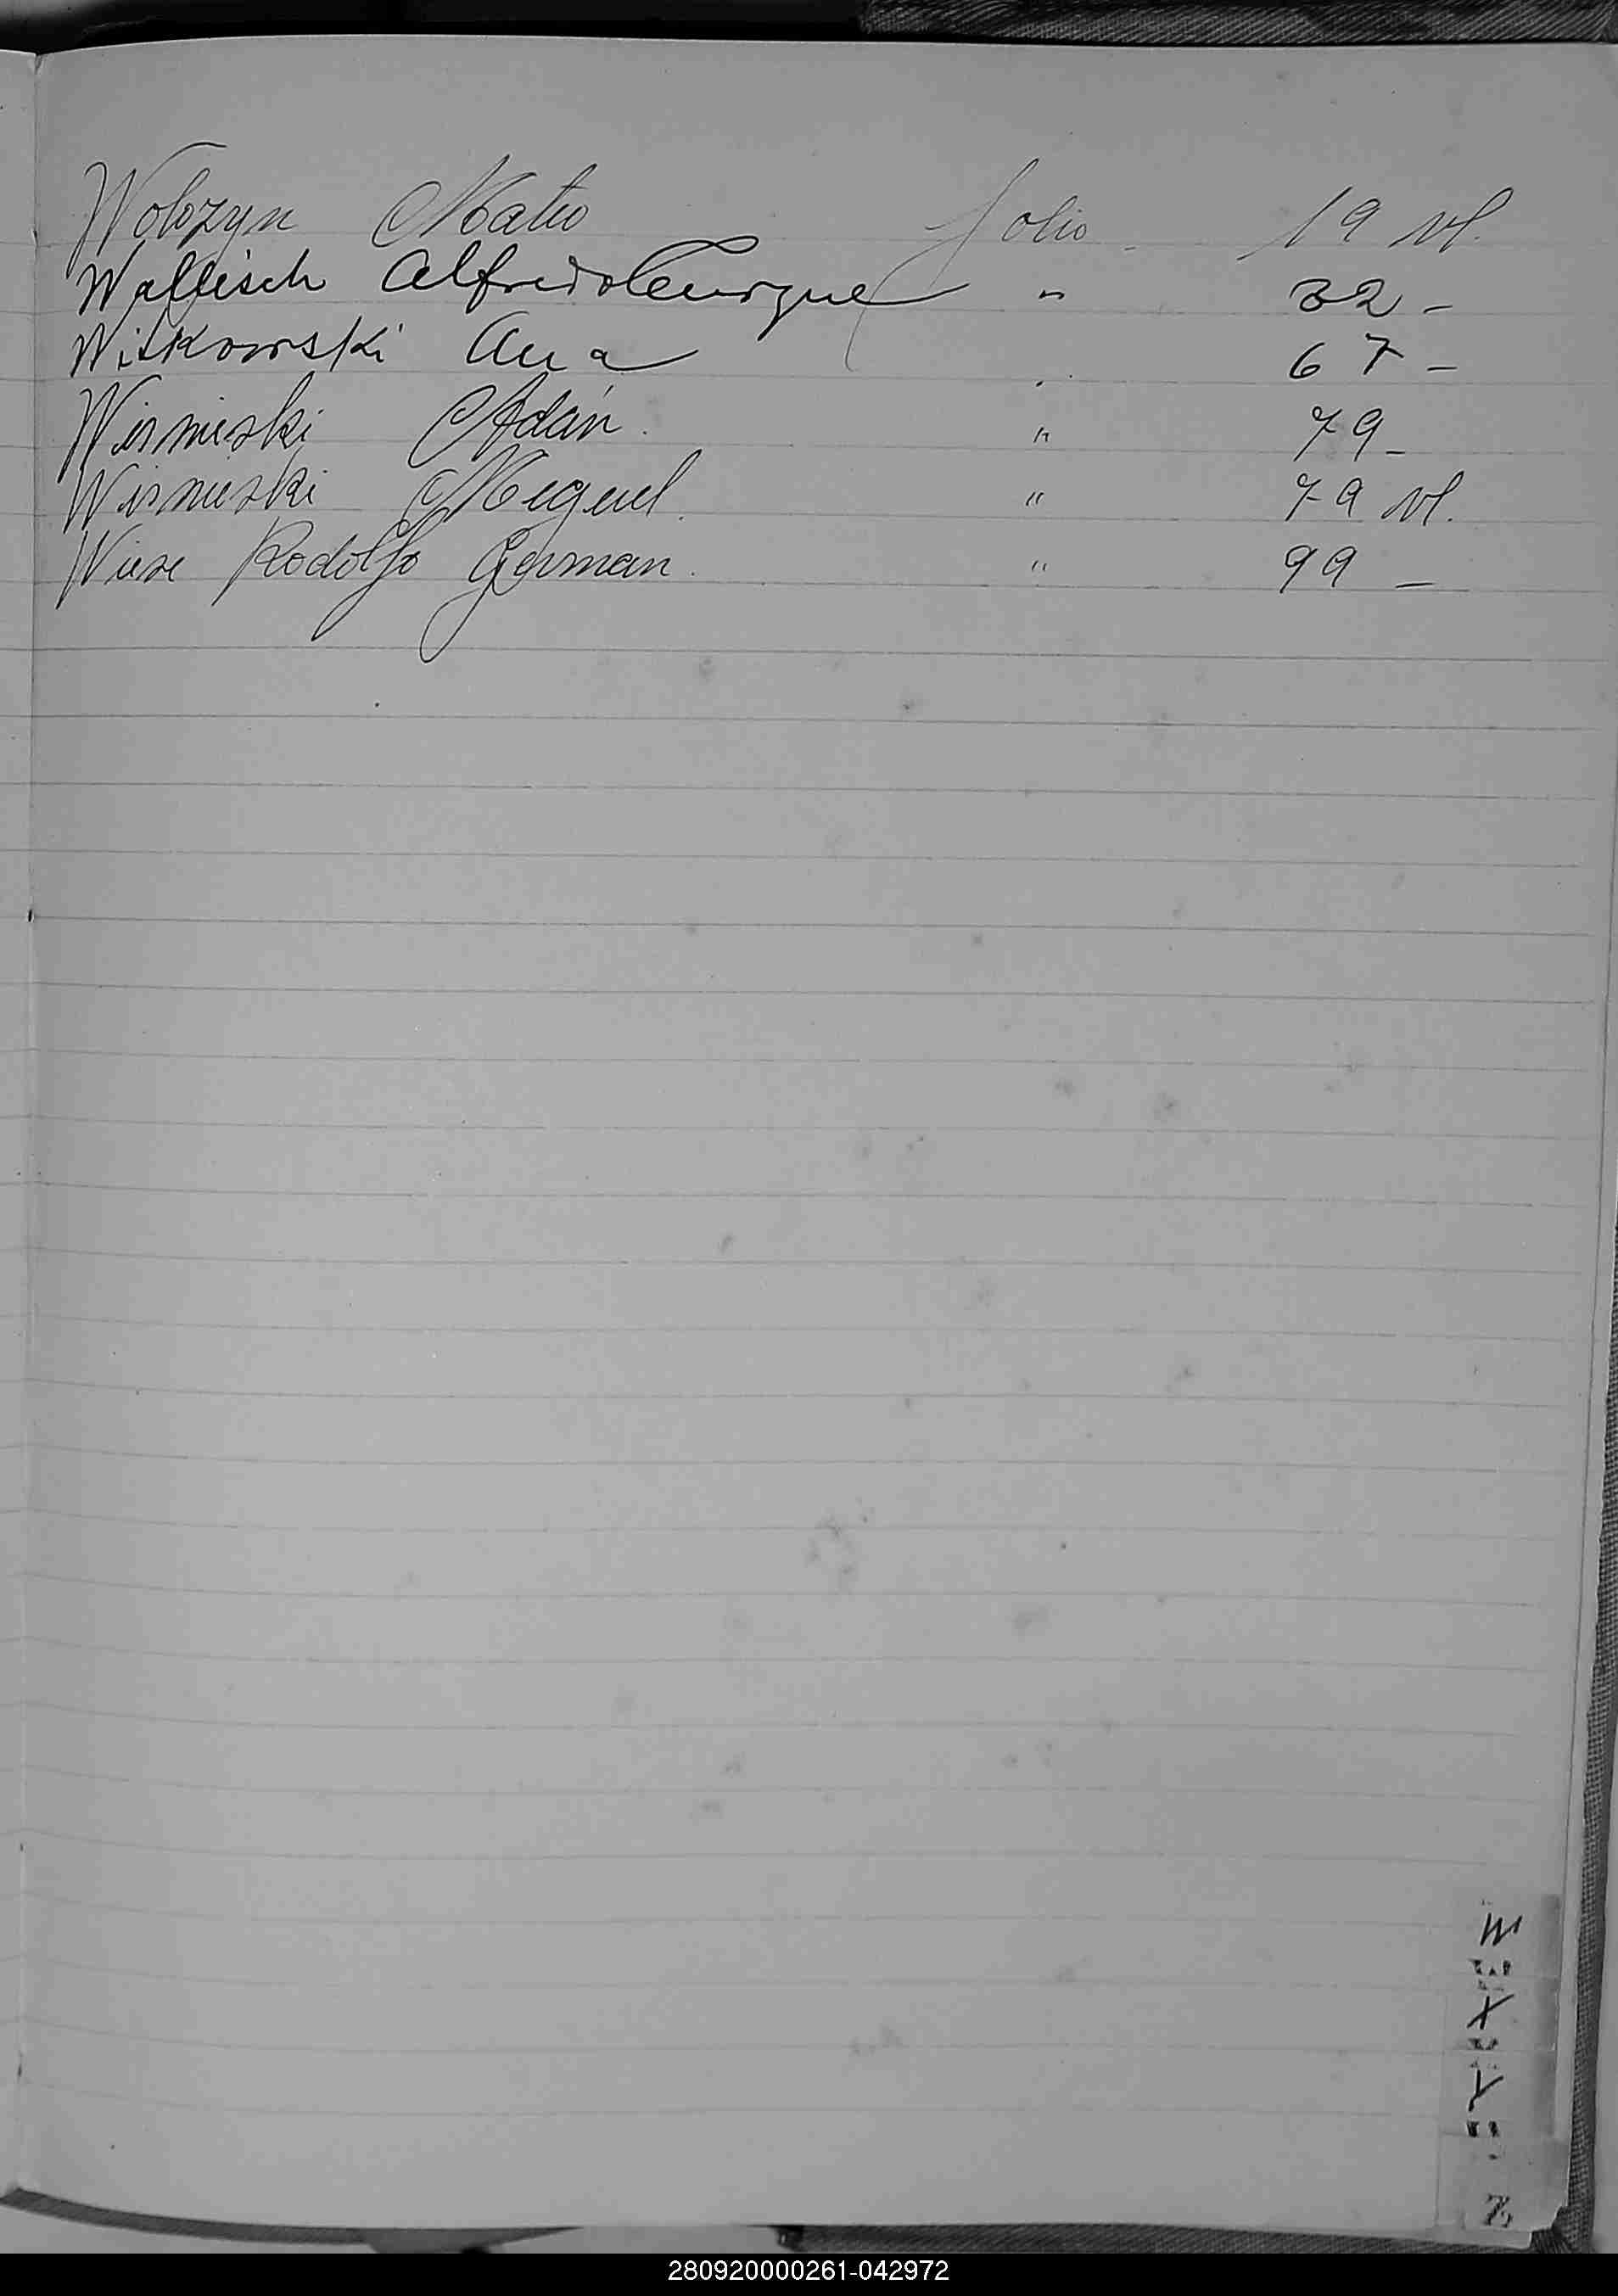 Wolozyn Mateo folio - 19 vl.
Wallisch Alfredo Enrique " 32 -
Witkowski Ana " 67 -
Wisnieski Adán. " 79 -
Wisnieski Miguel. " 79 vl.
Wiese Rodolfo German. " 99 -
W
X
Y
Z
280920000261-042972